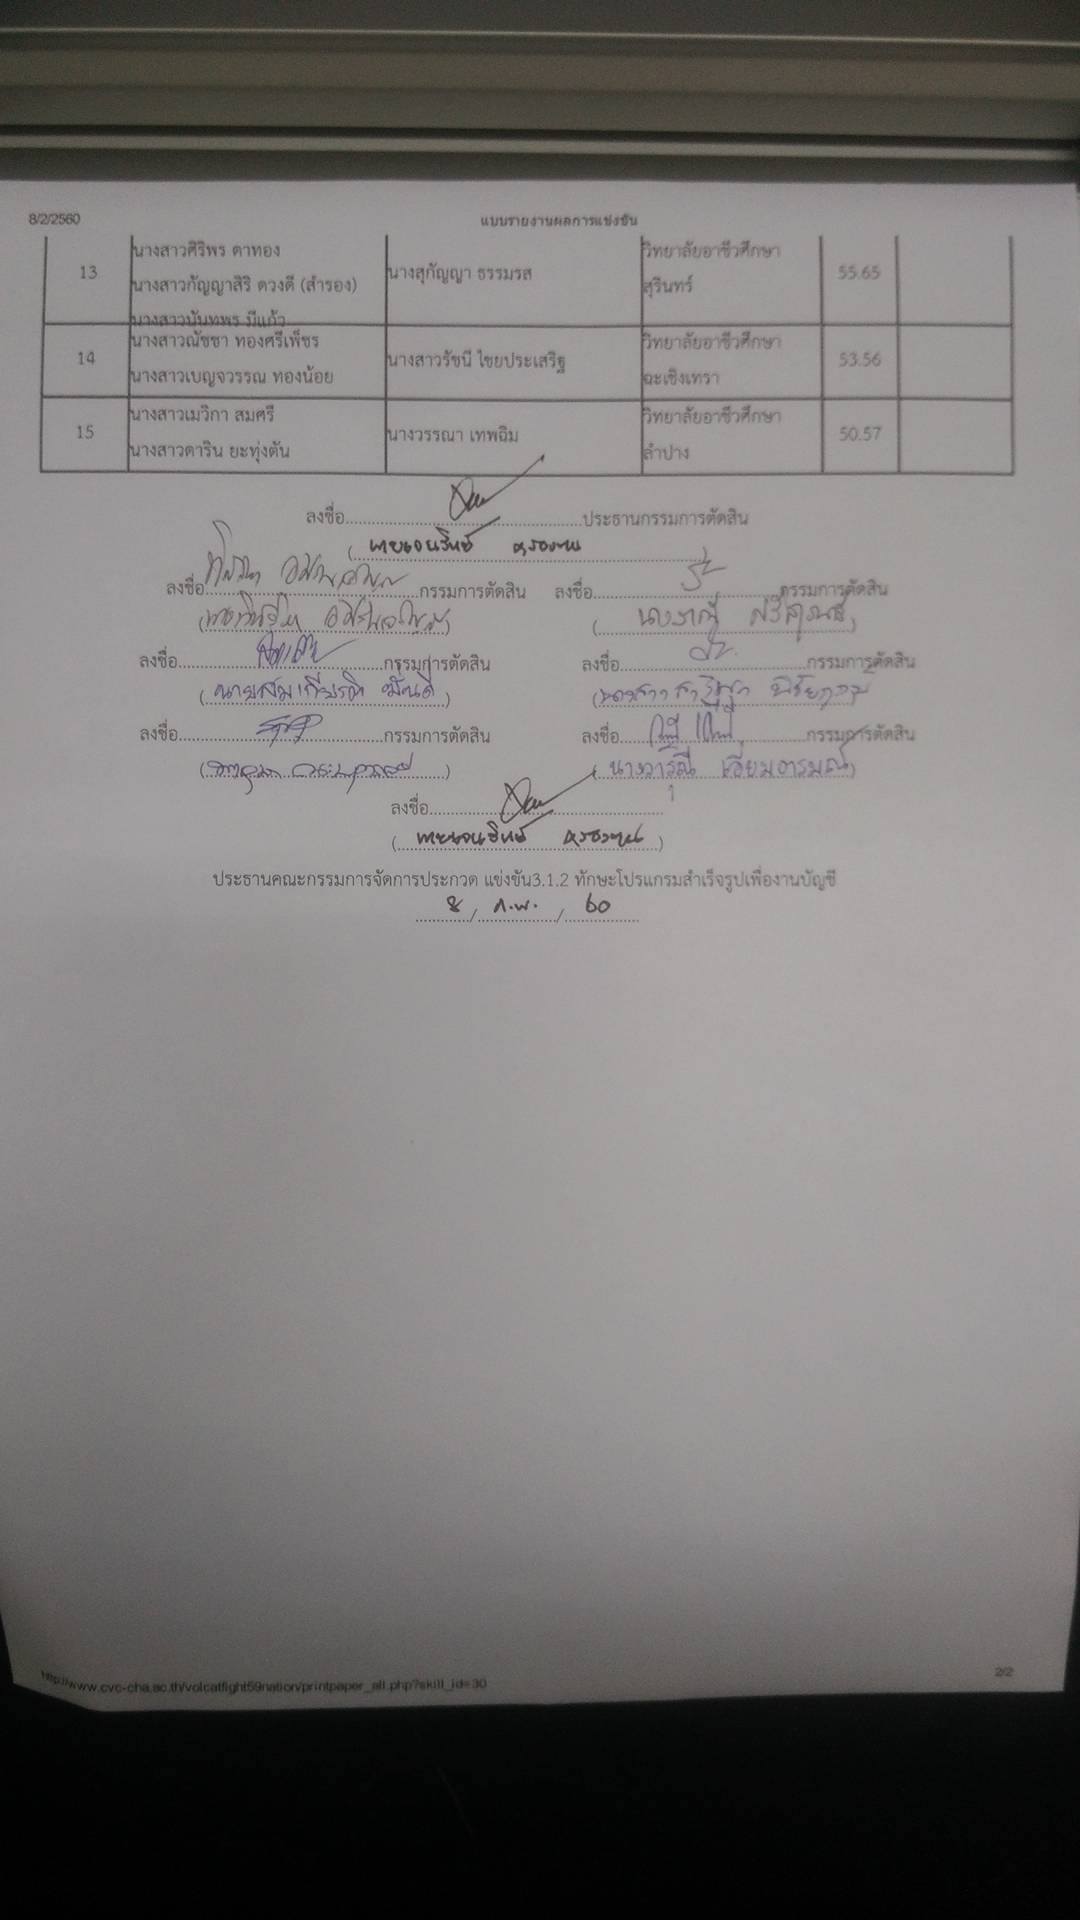 8/2/2560 แบบรายงานผลการแข่งขัน
นางสาวศิริพร ดาทอง วิทยาลัยอาชีวศึกษา
13 นางสาวกัญญาสิริ ดวงดี (สำรอง) นางสุกัญญา ธรรมรส สุรินทร์ 55.65
นางสาวนันทพร มีแก้ว
นางสาวณัชชา ทองศรีเพ็ชร วิทยาลัยอาชีวศึกษา
14 นางสาวเบญจวรรณ ทองน้อย นางสาวรัชนี ไชยประเสริฐ ฉะเชิงเทรา 53.56
นางสาวเมวิกา สมศรี วิทยาลัยอาชีวศึกษา
15 นางสาวดาริน ยะทุ่งตัน นางวรรณา เทพฉิม ลำปาง 50.57
ลงชื่อ ประธานกรรมการตัดสิน
ลงชื่อ กรรมการตัดสิน ลงชื่อ กรรมการตัดสิน
ลงชื่อ กรรมการตัดสิน ลงชื่อ กรรมการตัดสิน
(นายสมเกียรติ มั่นดี)
ลงชื่อ กรรมการตัดสิน ลงชื่อ กรรมการตัดสิน
(นางวารุณี เอี่ยมอารมณ์)
ลงชื่อ
ประธานคณะกรรมการจัดการประกวด แข่งขัน3.1.2 ทักษะโปรแกรมสำเร็จรูปเพื่องานบัญชี
8 / ก.พ. / 60
http://www.cvc-cha.ac.th/volcatfight59nation/printpaper_all.php?skill_id=30 2/2